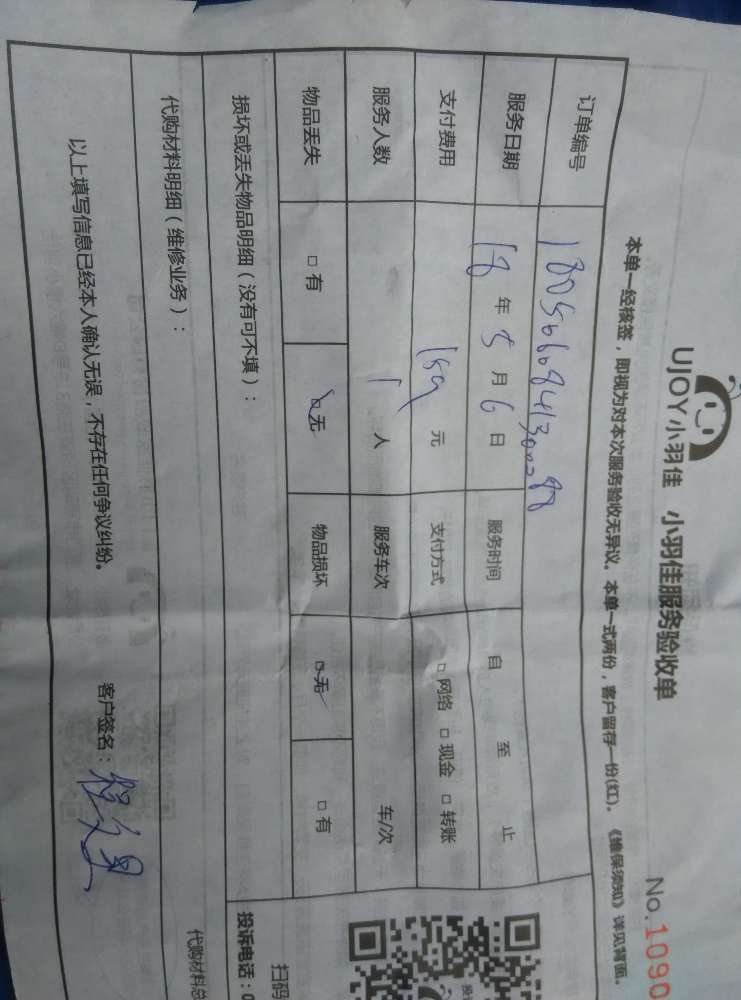 UJOY小羽佳 小羽佳服务验收单
No.1090
本单一经核签，即视为对本次服务验收无异议。本单一式两份，客户留存一份(红)。《维保须知》详见背面。
订单编号
服务日期 18 年 5 月 6 日 服务时间 自 至 止
支付费用 159 元 支付方式 □ 网络 □ 现金 □ 转账
服务人数 1 人 服务车次 车/次
物品丢失 □ 有 □ 无 物品损坏 □ 无 □ 有
损坏或丢失物品明细（没有可不填）：
代购材料明细（维修业务）：
代购材料总
以上填写信息已经本人确认无误，不存在任何争议纠纷。
客户签名：
扫码
投诉电话：0